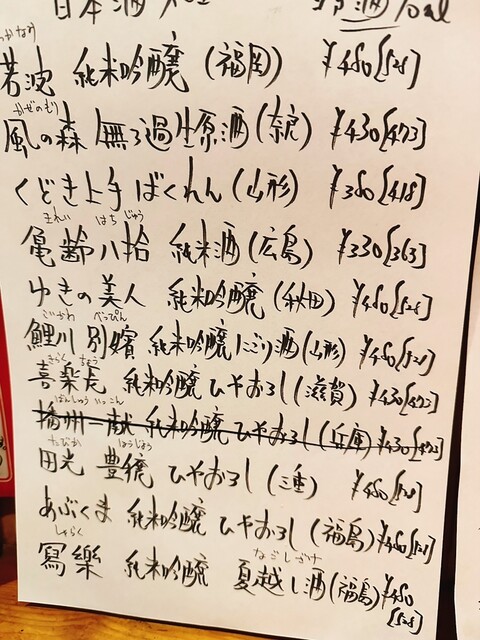 日本酒
わかなみ
若波 純米吟醸 (福岡) ¥480[528]
かぜのもり
風の森 無ろ過生原酒 (奈良) ¥430[473]
くどき上手 ばくれん (山形) ¥380[418]
きれい はちじゅう
亀齢 八拾 純米酒 (広島) ¥330[363]
ゆきの美人 純米吟醸 (秋田) ¥480[528]
こいかわ べっぴん
鯉川 別嬪 純米吟醸 にごり酒 (山形) ¥480[528]
きらくちょう
喜楽長 純米吟醸 ひやおろし (滋賀) ¥430[473]
ばんしゅういっこん
播州一献 純米吟醸 ひやおろし (兵庫) ¥430[473]
たびか ほうじょう
田光 豊穣 ひやおろし (三重) ¥480[528]
あぶくま 純米吟醸 ひやおろし (福島) ¥480[528]
しゃらく なごしざけ
寫樂 純米吟醸 夏越し酒 (福島) ¥480
[528]